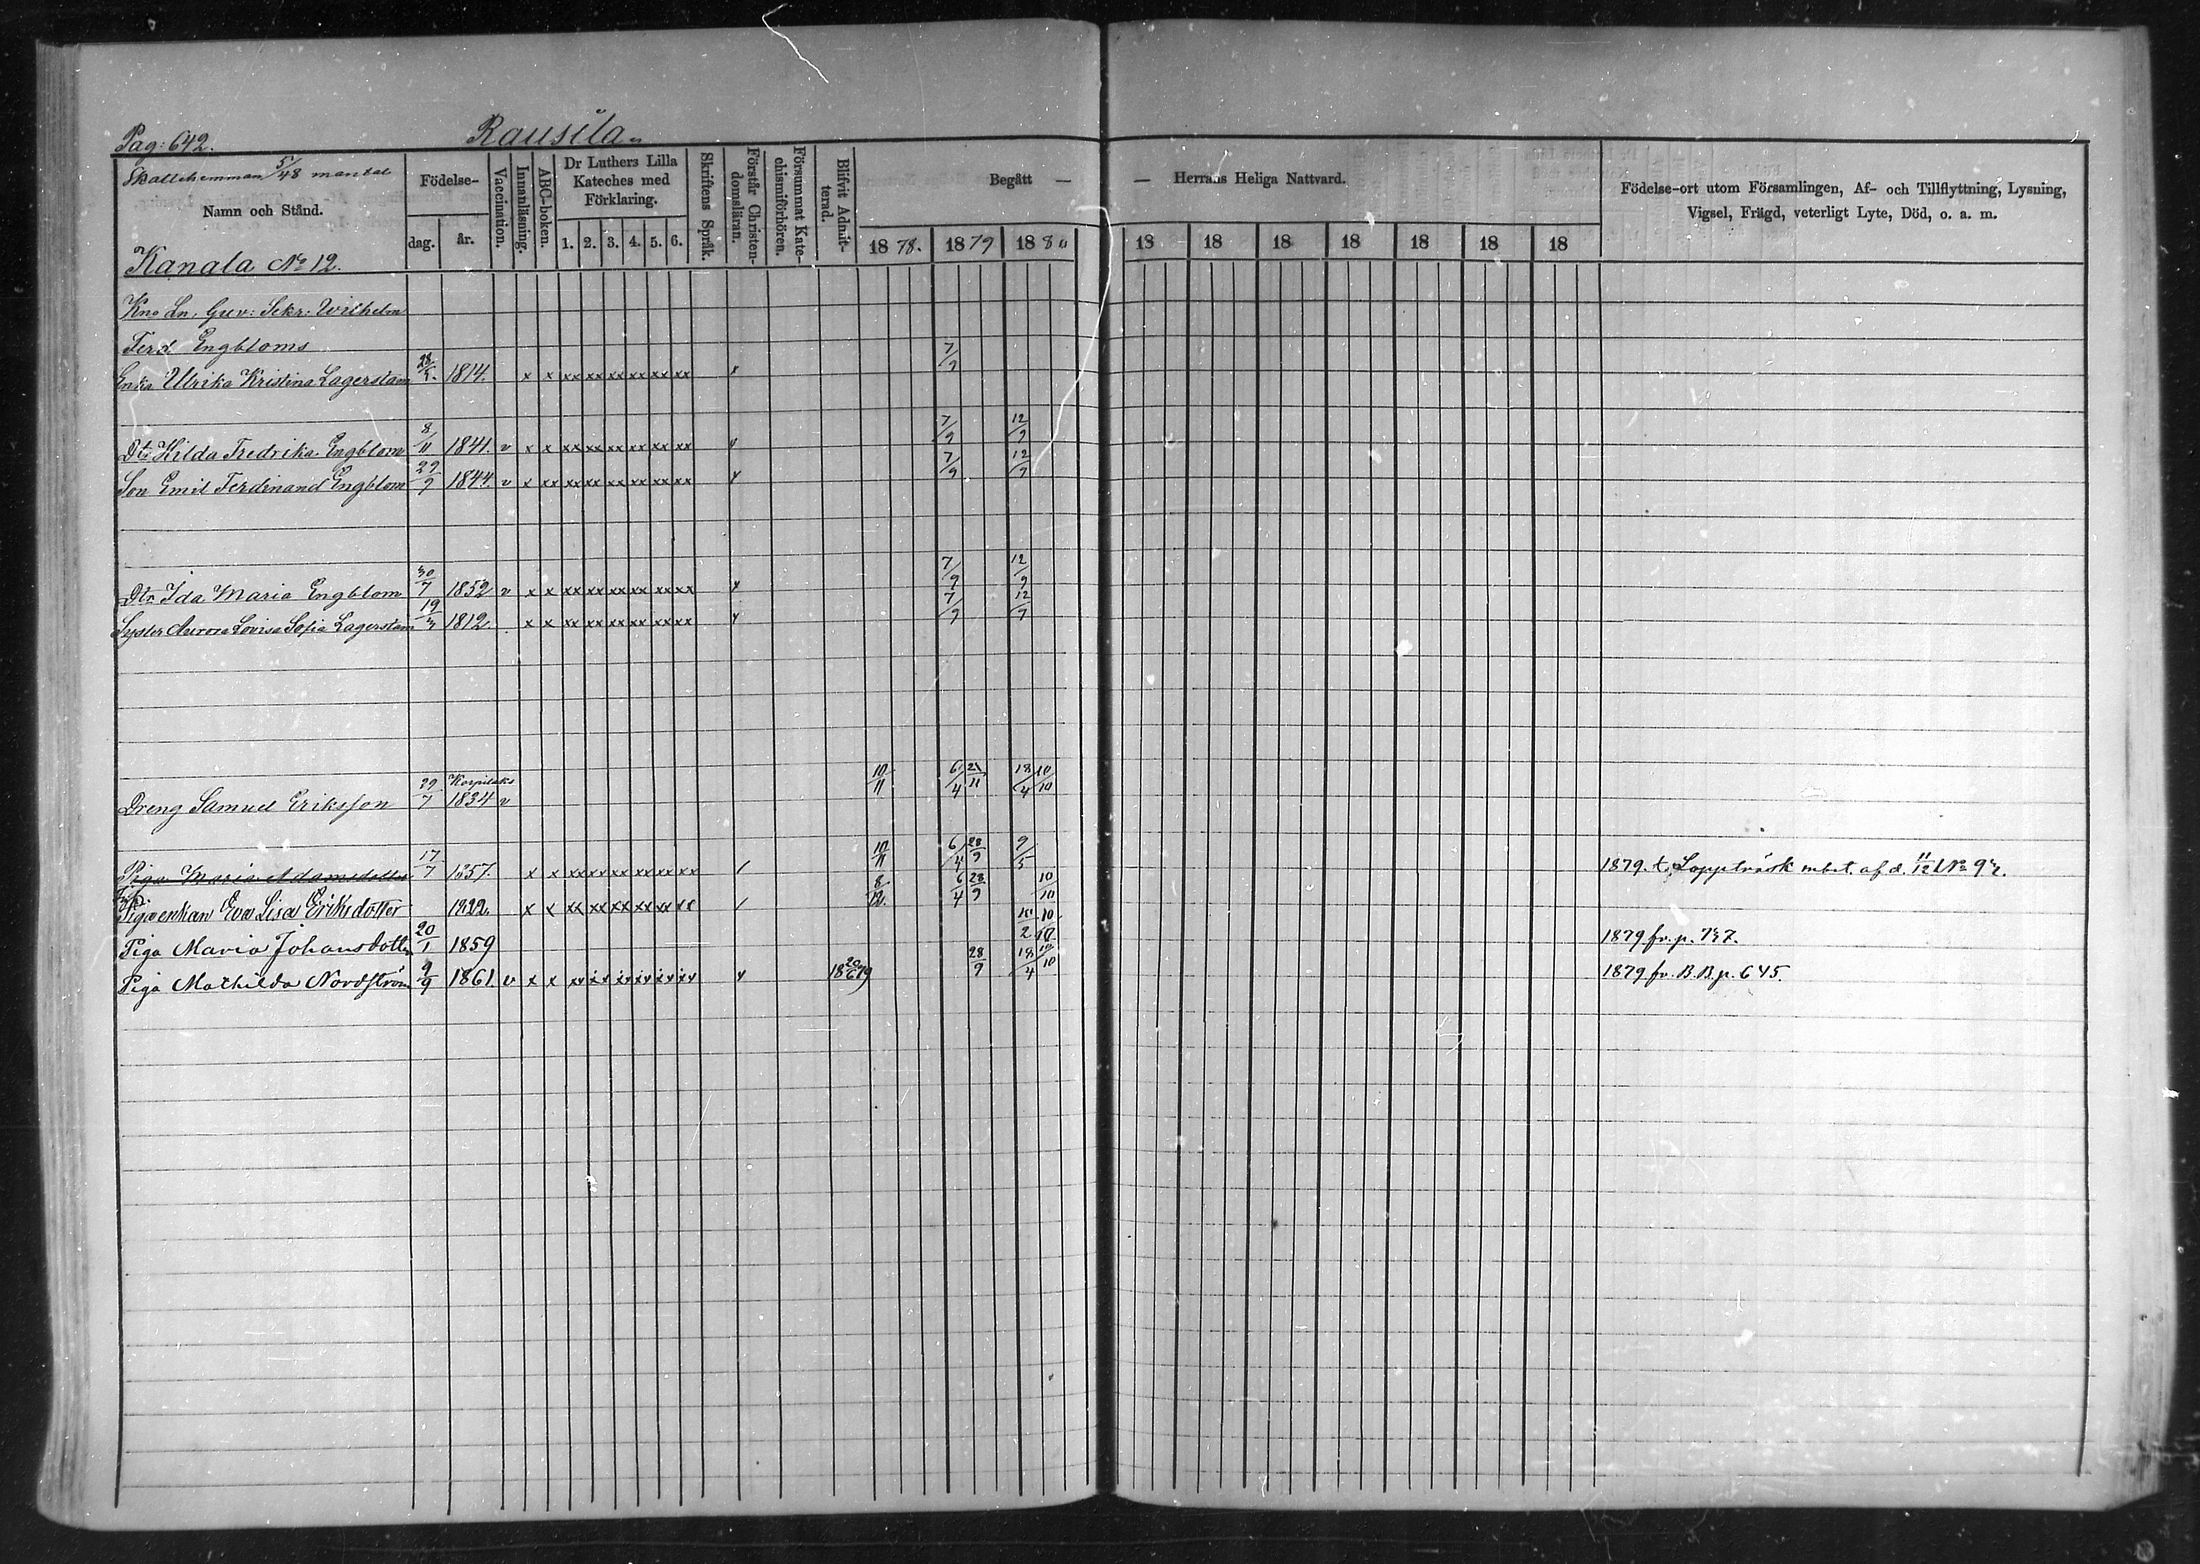 Pag: 642. Rausila
Skattehemman 5/48 mantal
Namn och Stånd.
Födelse-
dag. år.
Vaccination.
Innanläsning.
ABC-boken.
Dr Luthers Lilla
Kateches med
Förklaring.
1. 2. 3. 4. 5. 6.
Skriftens Språk.
Förstår Christen-
domsläran.
Försummat Kate-
chismiförhören.
Blifvit Admit-
terad.
Begått — — Herrans Heliga Nattvard.
18 78. 18 79 18 80 18 18 18 18 18 18 18
Födelse-ort utom Församlingen, Af- och Tillflyttning, Lysning,
Vigsel, Frägd, veterligt Lyte, Död, o. a. m.
Kanala No 12.
Sekr: Wilhelm
Ferd Engbloms 7/9
Enka Ulrika Kristina Lagerstam 1814. x x xx xx xx xx xx xx x
Dtr Hilda Fredrika Engblom 8/11 1841. v x x xx xx xx xx xx xx x 7/9 12/9
Son Emil Ferdinand Engblom 29/9 1844. v x xx xx xx xx xx xx xx x 7/9 12/9
Dtr Ida Maria Engblom 30/7 1852 v x x xx xx xx xx xx xx x 7/9 12/9
Syster Aurora Lovisa Sofia Lagerstam 19/3 1812. x x xx xx xx xx xx xx x 7/9 12/9
Dreng Samuel Eriksson 29/7 1834 v 10/11 6/4 18/4 10/10
Piga Maria Adamsdotter 17/7 1857. x x xx xx xx xx xx xx / 10/11 6/4 28/9 9/5 1879. t. Lappträsk
Pigoenkan Eva Lisa Eriksdotter 1822. x x xx xx xx xx xx xx / 8/12. 6/4 28/9 10/10
Piga Maria Johansdotter 20/1 1859 1879 fr. p.
Piga Mathilda Nordström 9/9 1861. v x x xx xx xx xx xx xx x 28/9 18/4 10/10 1879 fr. B.B. p. 645.